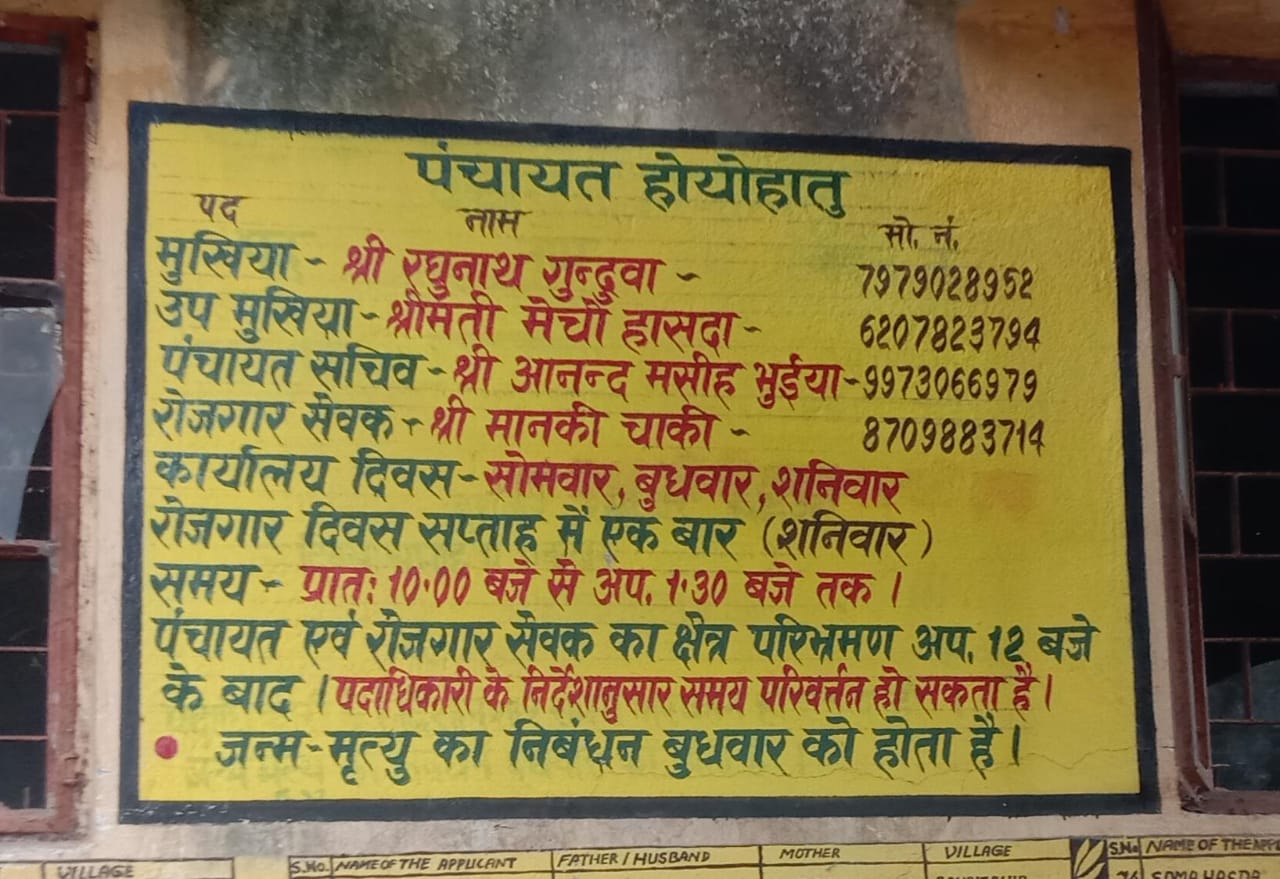 पंचायत होयोहातु
पद नाम मो. नं.
मुखिया - श्री रघुनाथ गुन्दुवा - 7979028952
उप मुखिया - श्रीमती मेचो हासदा - 6207823794
पंचायत सचिव - श्री आनन्द मसीह भुईया - 9973066979
रोजगार सेवक - श्री मानकी चाकी - 8709883714
कार्यालय दिवस - सोमवार, बुधवार, शनिवार
रोजगार दिवस सप्ताह में एक बार (शनिवार)
समय - प्रात: 10.00 बजे से अप. 1.30 बजे तक ।
पंचायत एवं रोजगार सेवक का क्षेत्र परिभ्रमण अप. 12 बजे
के बाद । पदाधिकारी के निर्देशानुसार समय परिवर्त्तन हो सकता है ।
• जन्म-मृत्यु का निबंधन बुधवार को होता है ।
VILLAGE S.No. NAME OF THE APPLICANT FATHER / HUSBAND MOTHER VILLAGE S.No. NAME OF THE
76 SOMA HASDA